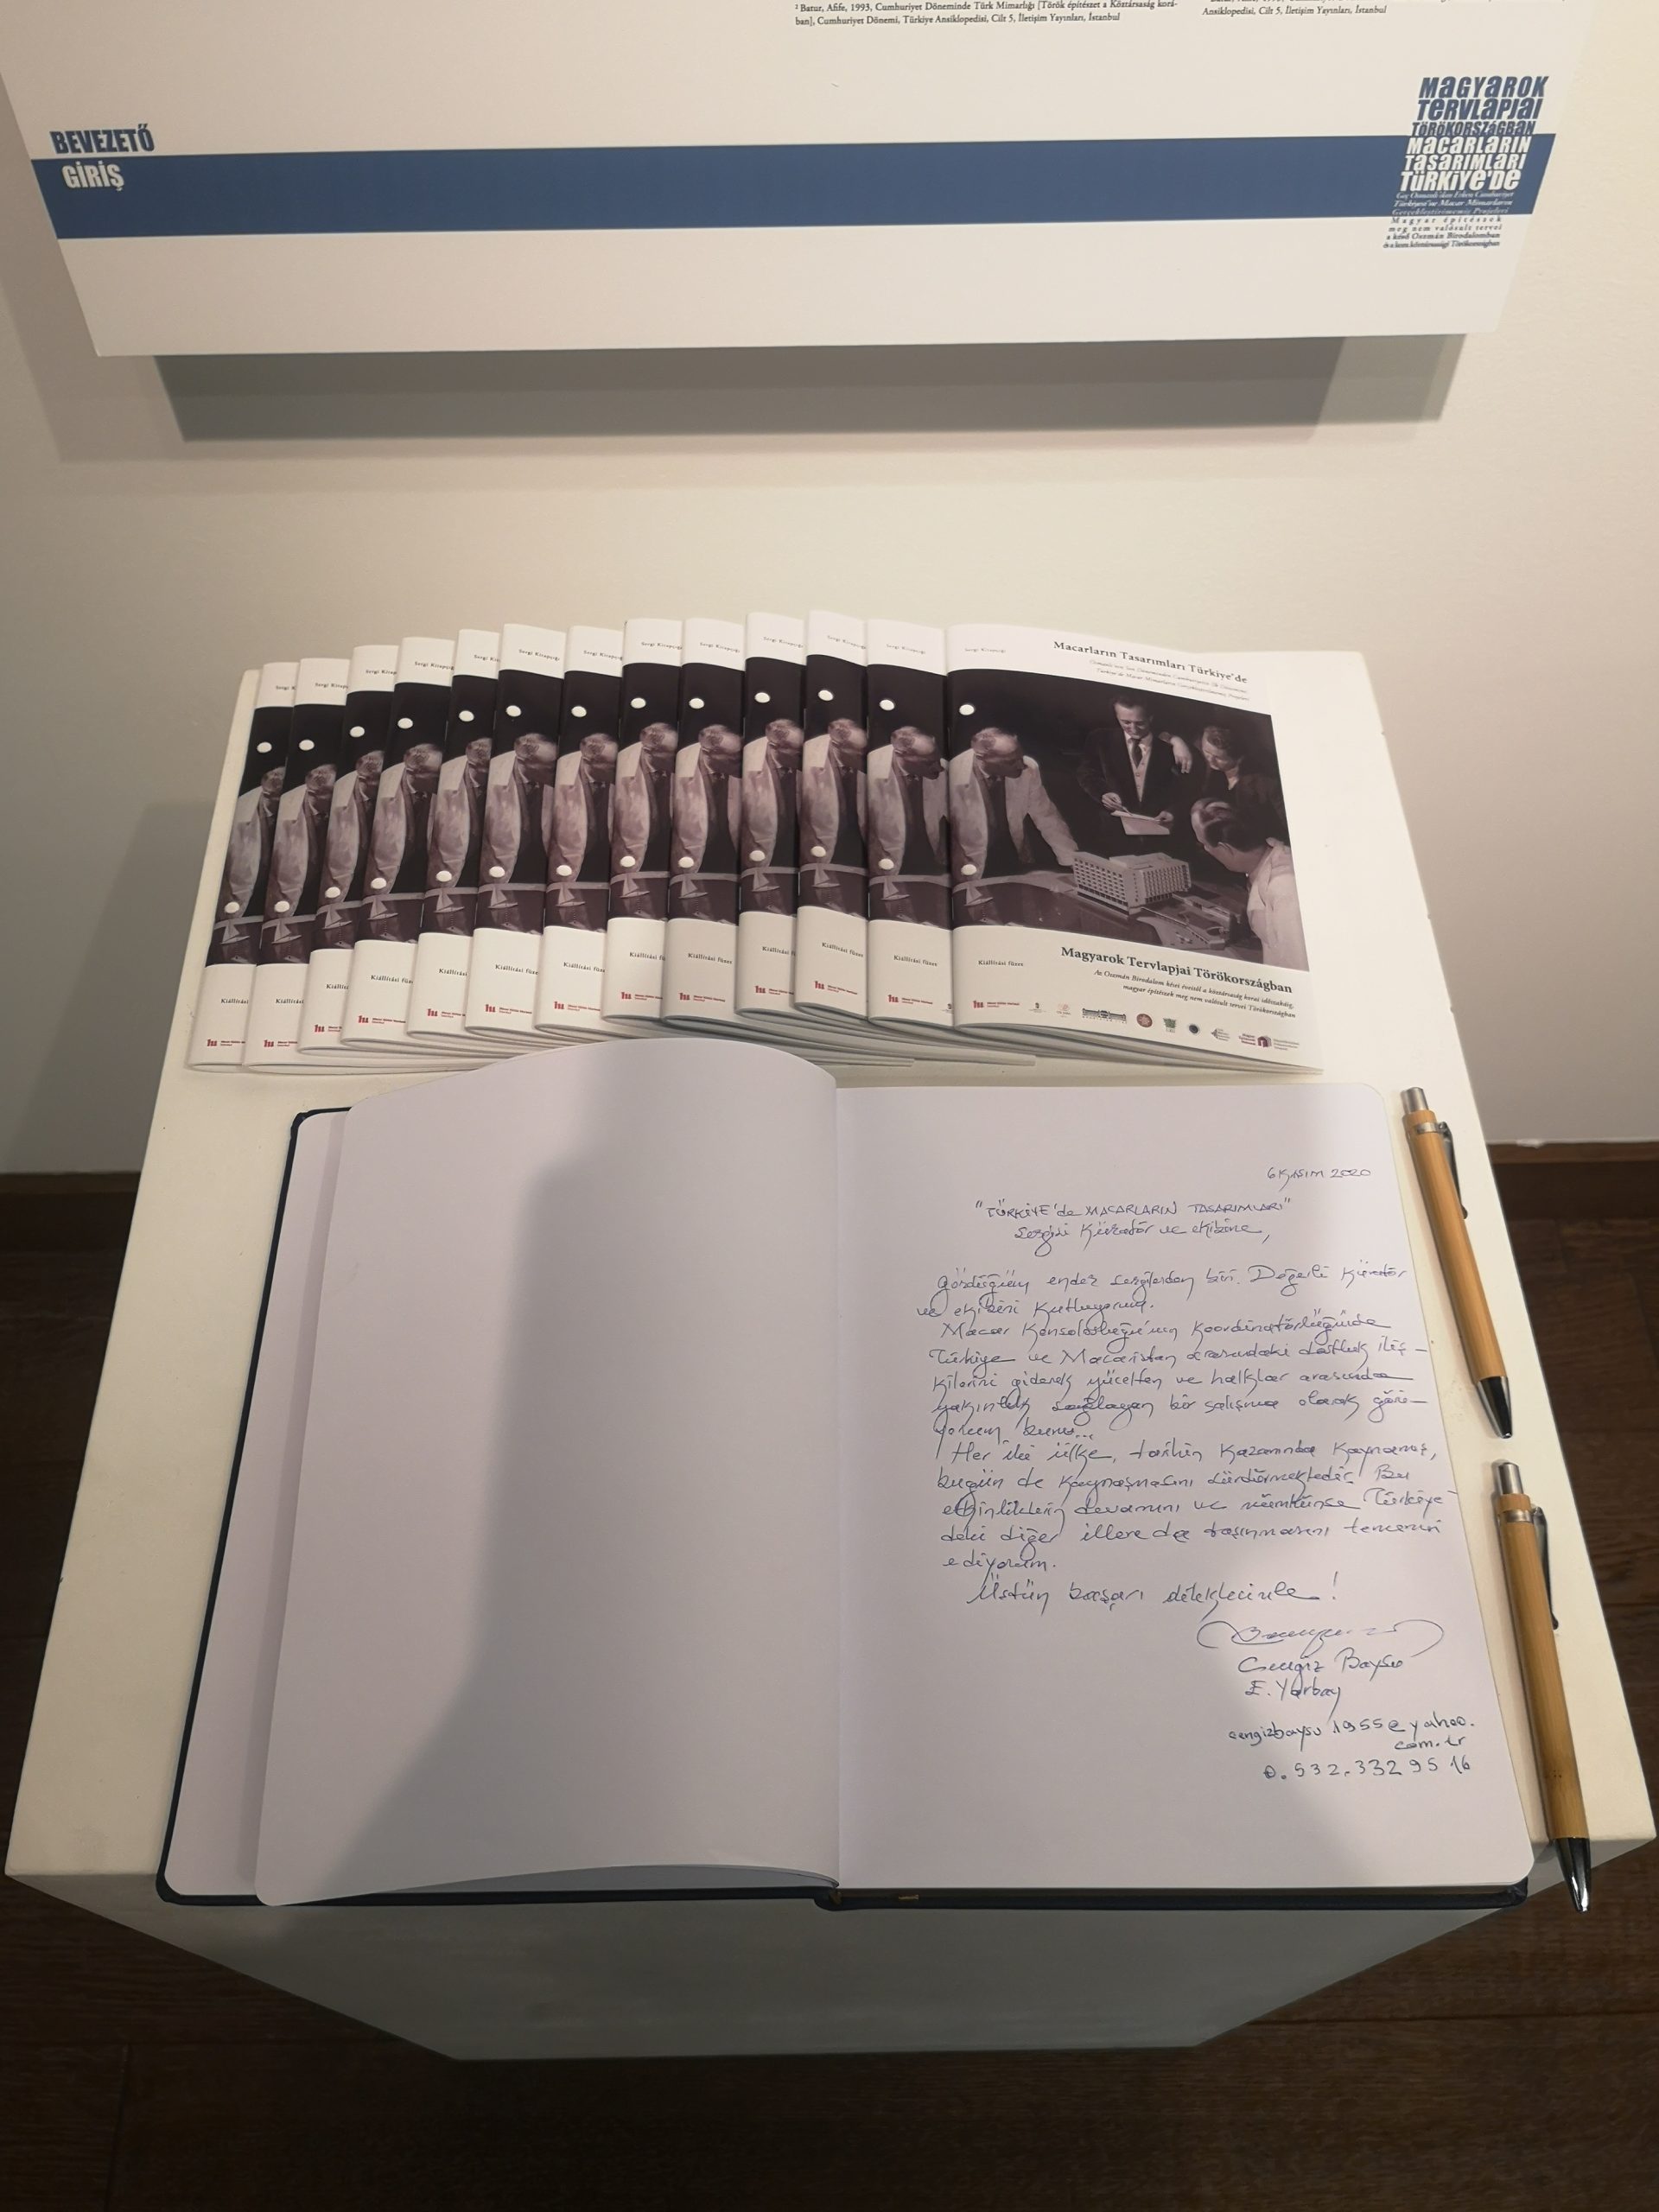 ² Batur, Afife, 1993, Cumhuriyet Döneminde Türk Mimarlığı [Török építészet a Köztársaság korá-
ban], Cumhuriyet Dönemi, Türkiye Ansiklopedisi, Cilt 5, İletişim Yayınları, İstanbul
Ansiklopedisi, Cilt 5, İletişim Yayınları, İstanbul
BEVEZETŐ
GİRİŞ
MAGYAROK
TERVLAPJAI
TÖRÖKORSZÁGBAN
MACARLARIN
TASARIMLARI
TÜRKİYE'DE
Geç Osmanlı'dan Erken Cumhuriyet
Türkiyesi'ne Macar Mimarların
Gerçekleştirilmemiş Projeleri
Magyar építészek
meg nem valósult tervei
a késő Oszmán Birodalomban
és a kora köztársasági Törökországban
Sergi Kitapçığı
Macarların Tasarımları Türkiye'de
Kiállítási füzet
Magyarok Tervlapjai Törökországban
Az Oszmán Birodalom kései éveitől a köztársaság korai időszakáig,
magyar építészek meg nem valósult tervei Törökországban
6 KASIM 2020
"TÜRKİYE'de MACARLARIN TASARIMLARI"
Sergisi Küratör ve ekibine,
Gördüğüm ender sergilerden biri. Değerli Küratör
ve ekibini Kutluyorum.
Macar Konsolosluğu'nun Koordinatörlüğünde
Türkiye ve Macaristan arasındaki dostluk iliş-
kilerini giderek yücelten ve halklar arasında
yakınlık sağlayan bir çalışma olarak görü-
yorum bunu...
Her iki ülke, tarihin Kazanında Kaynamış,
bugün de Kaynaşmasını sürdürmektedir. Bu
etkinliklerin devamını ve mümkünse Türkiye
deki diğer illere de taşınmasını temenni
ediyorum.
Üstün başarı dileklerimle!
Cengiz Baysu
E. Yarbay
cengizbaysu1955@yahoo.
com.tr
0.532.332 95 16